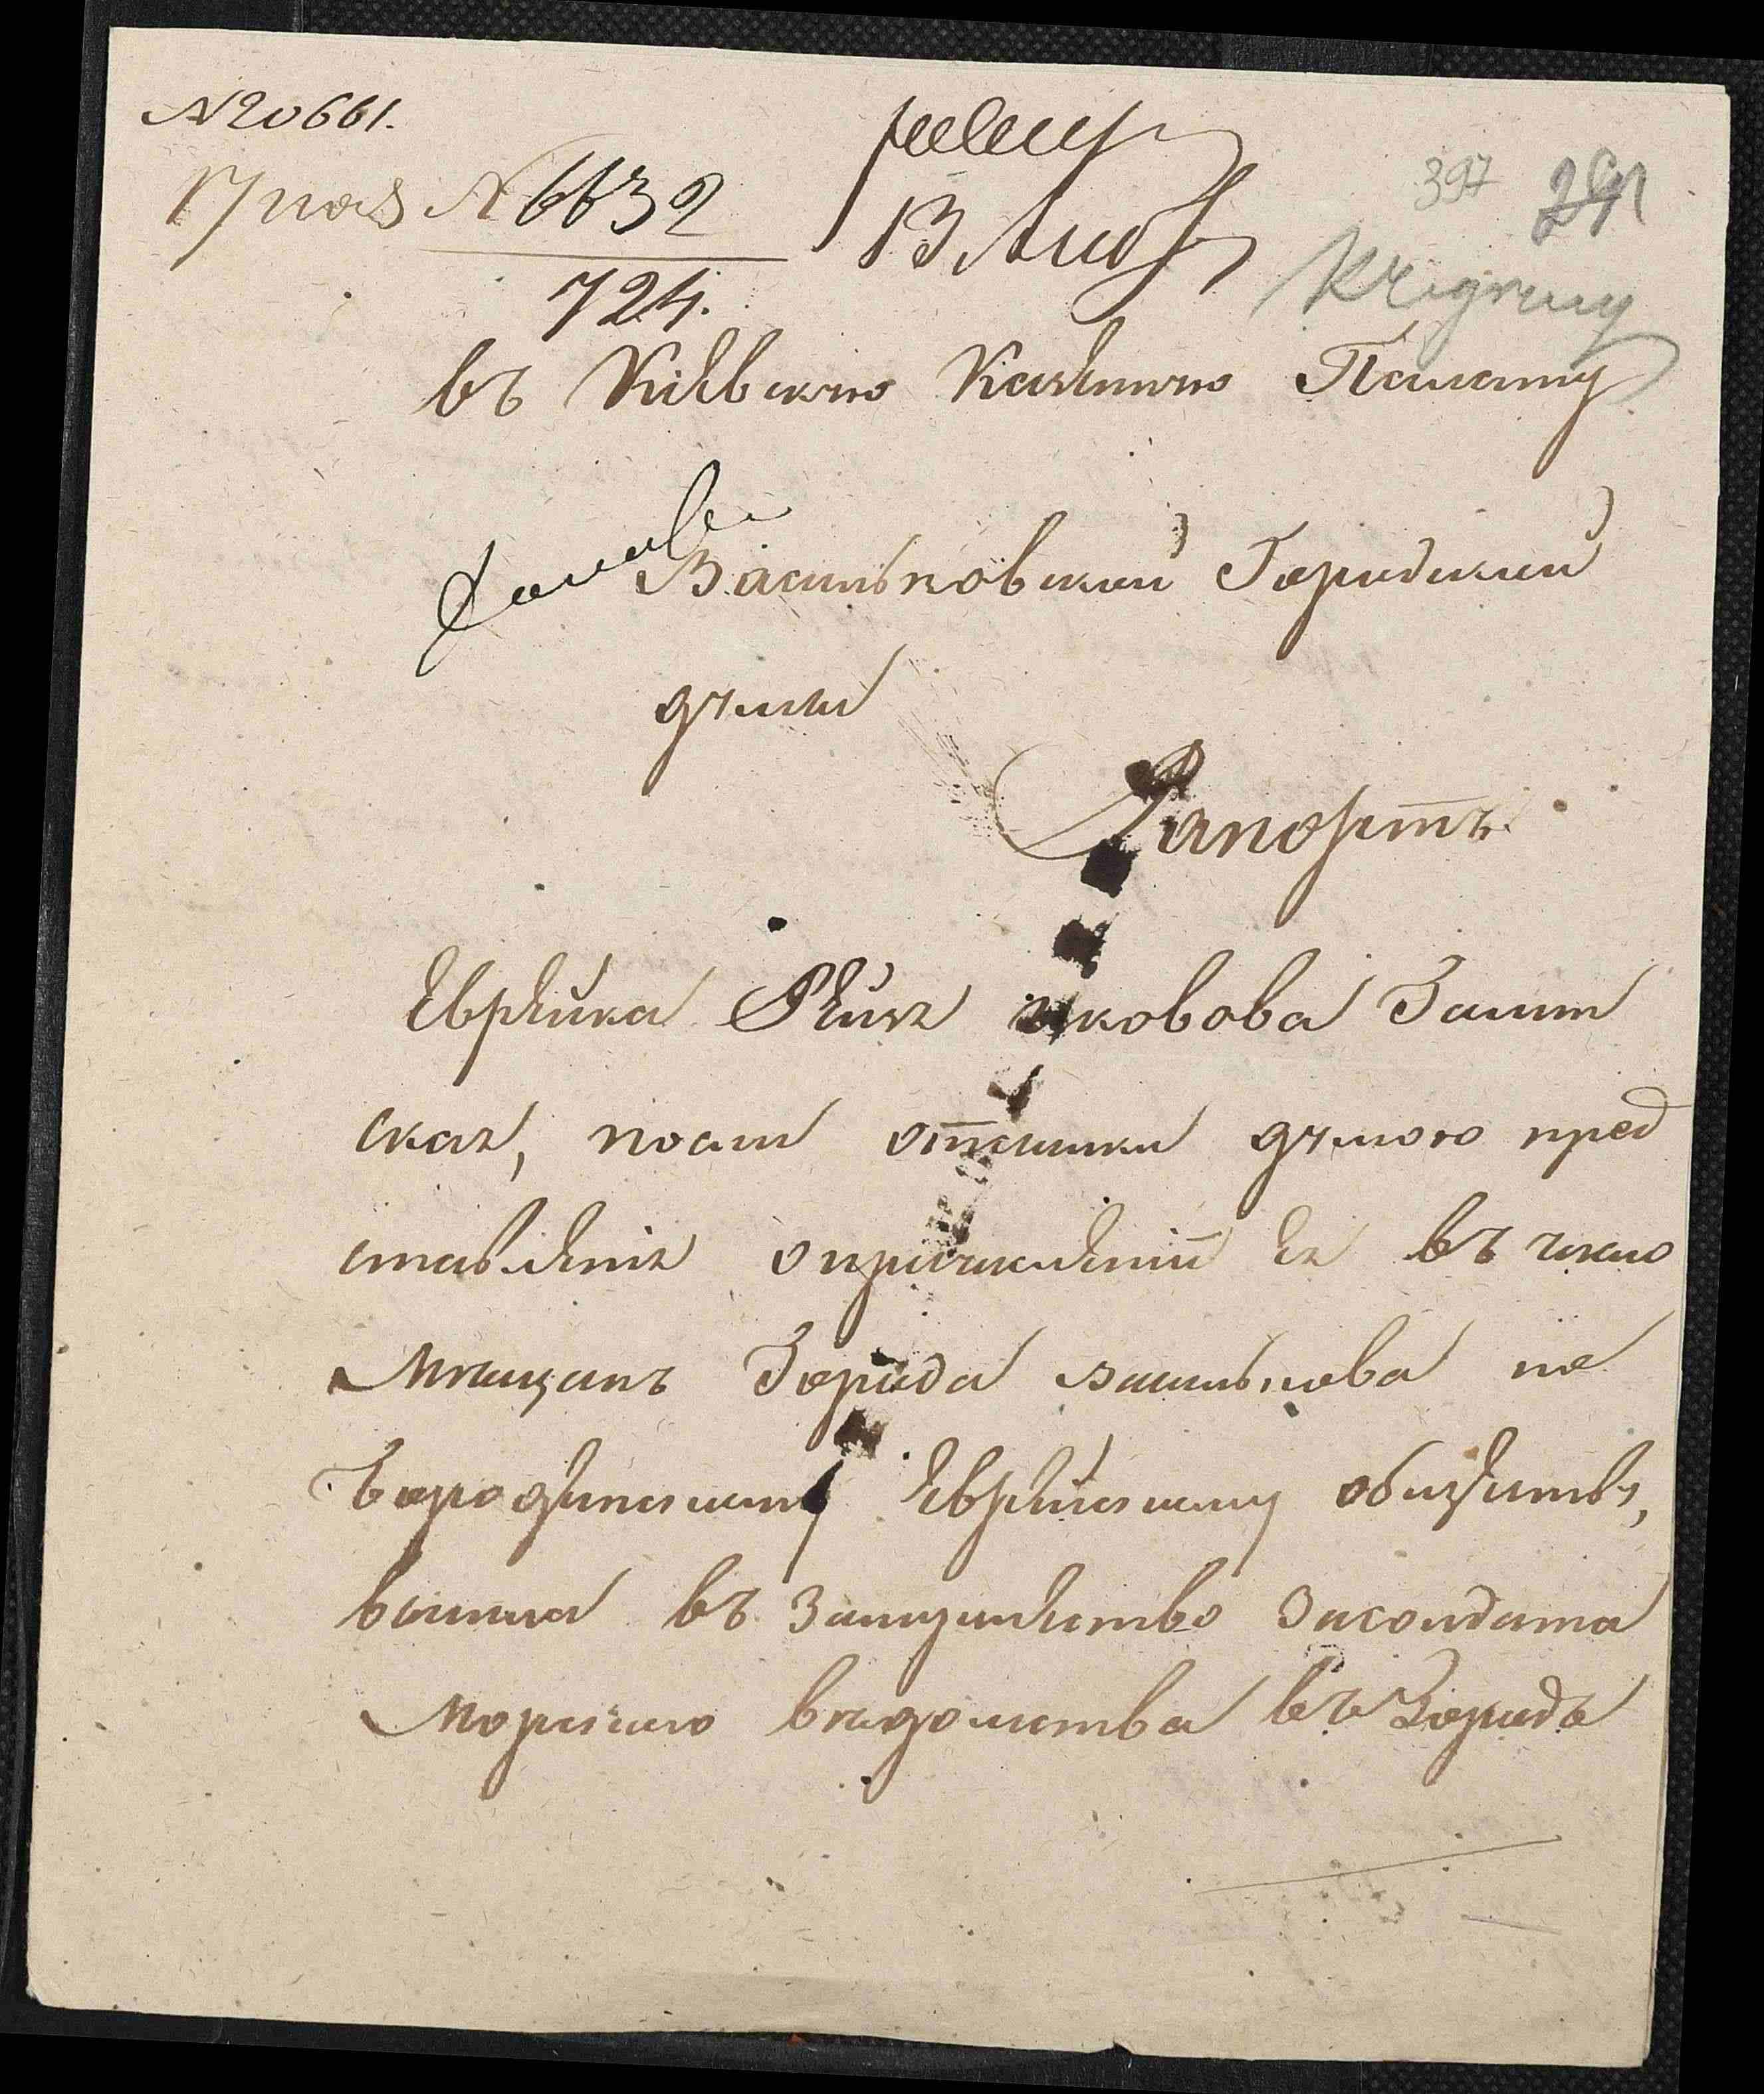 № 20661.
17 нояб № 6632
724.
13 Нояб
397
въ Кіевскую Казенную Палату
Васильковской Городской
думы
Рапортъ
Еврейка Рейзя Яковова Замит
ская, после отсылки думою пред
ставленія о причисленіи ея въ число
мещанъ Города василькова по
тородженскому Еврейскому обществу,
вышла въ замужество за солдата
морскаго ведомства въ Городе